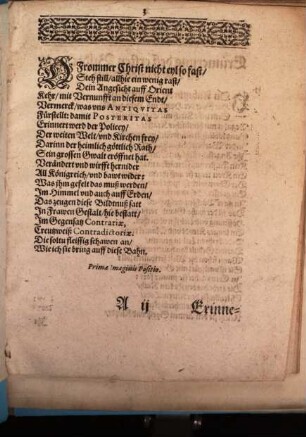 3
O Frommer Christ nicht eyl so fast/
Steh still/allhie ein wenig rast/
Dein Angesicht auff Orient
Kehr/mit Vernunfft an diesem Endt/
Vermerck/was vns ANTIQVITAS
Fürstellt: damit POSTERITAS
Erinnert werd der Policey/
Der weiten Welt/vnd Kirchen frey/
Darinn der heimlich göttlich Rath/
Sein grossen Gwalt eröffnet hat.
Verändert vnd wirfft hernider
All Königreich/vnd bawt wider:
Was jhm gefelt das muß werden/
Im Himmel vnd auch auff Erden/
Das zeugen diese Bildnuß satt
In Frawen Gestalt/hie bestatt/
Im Gegensatz Contrariæ,
Creutzweiß Contradictoriæ.
Die soltu fleissig schawen an/
Wie ich sie bring auff diese Bahn.
Prima imaginis Positio.
A ij
Erinne-